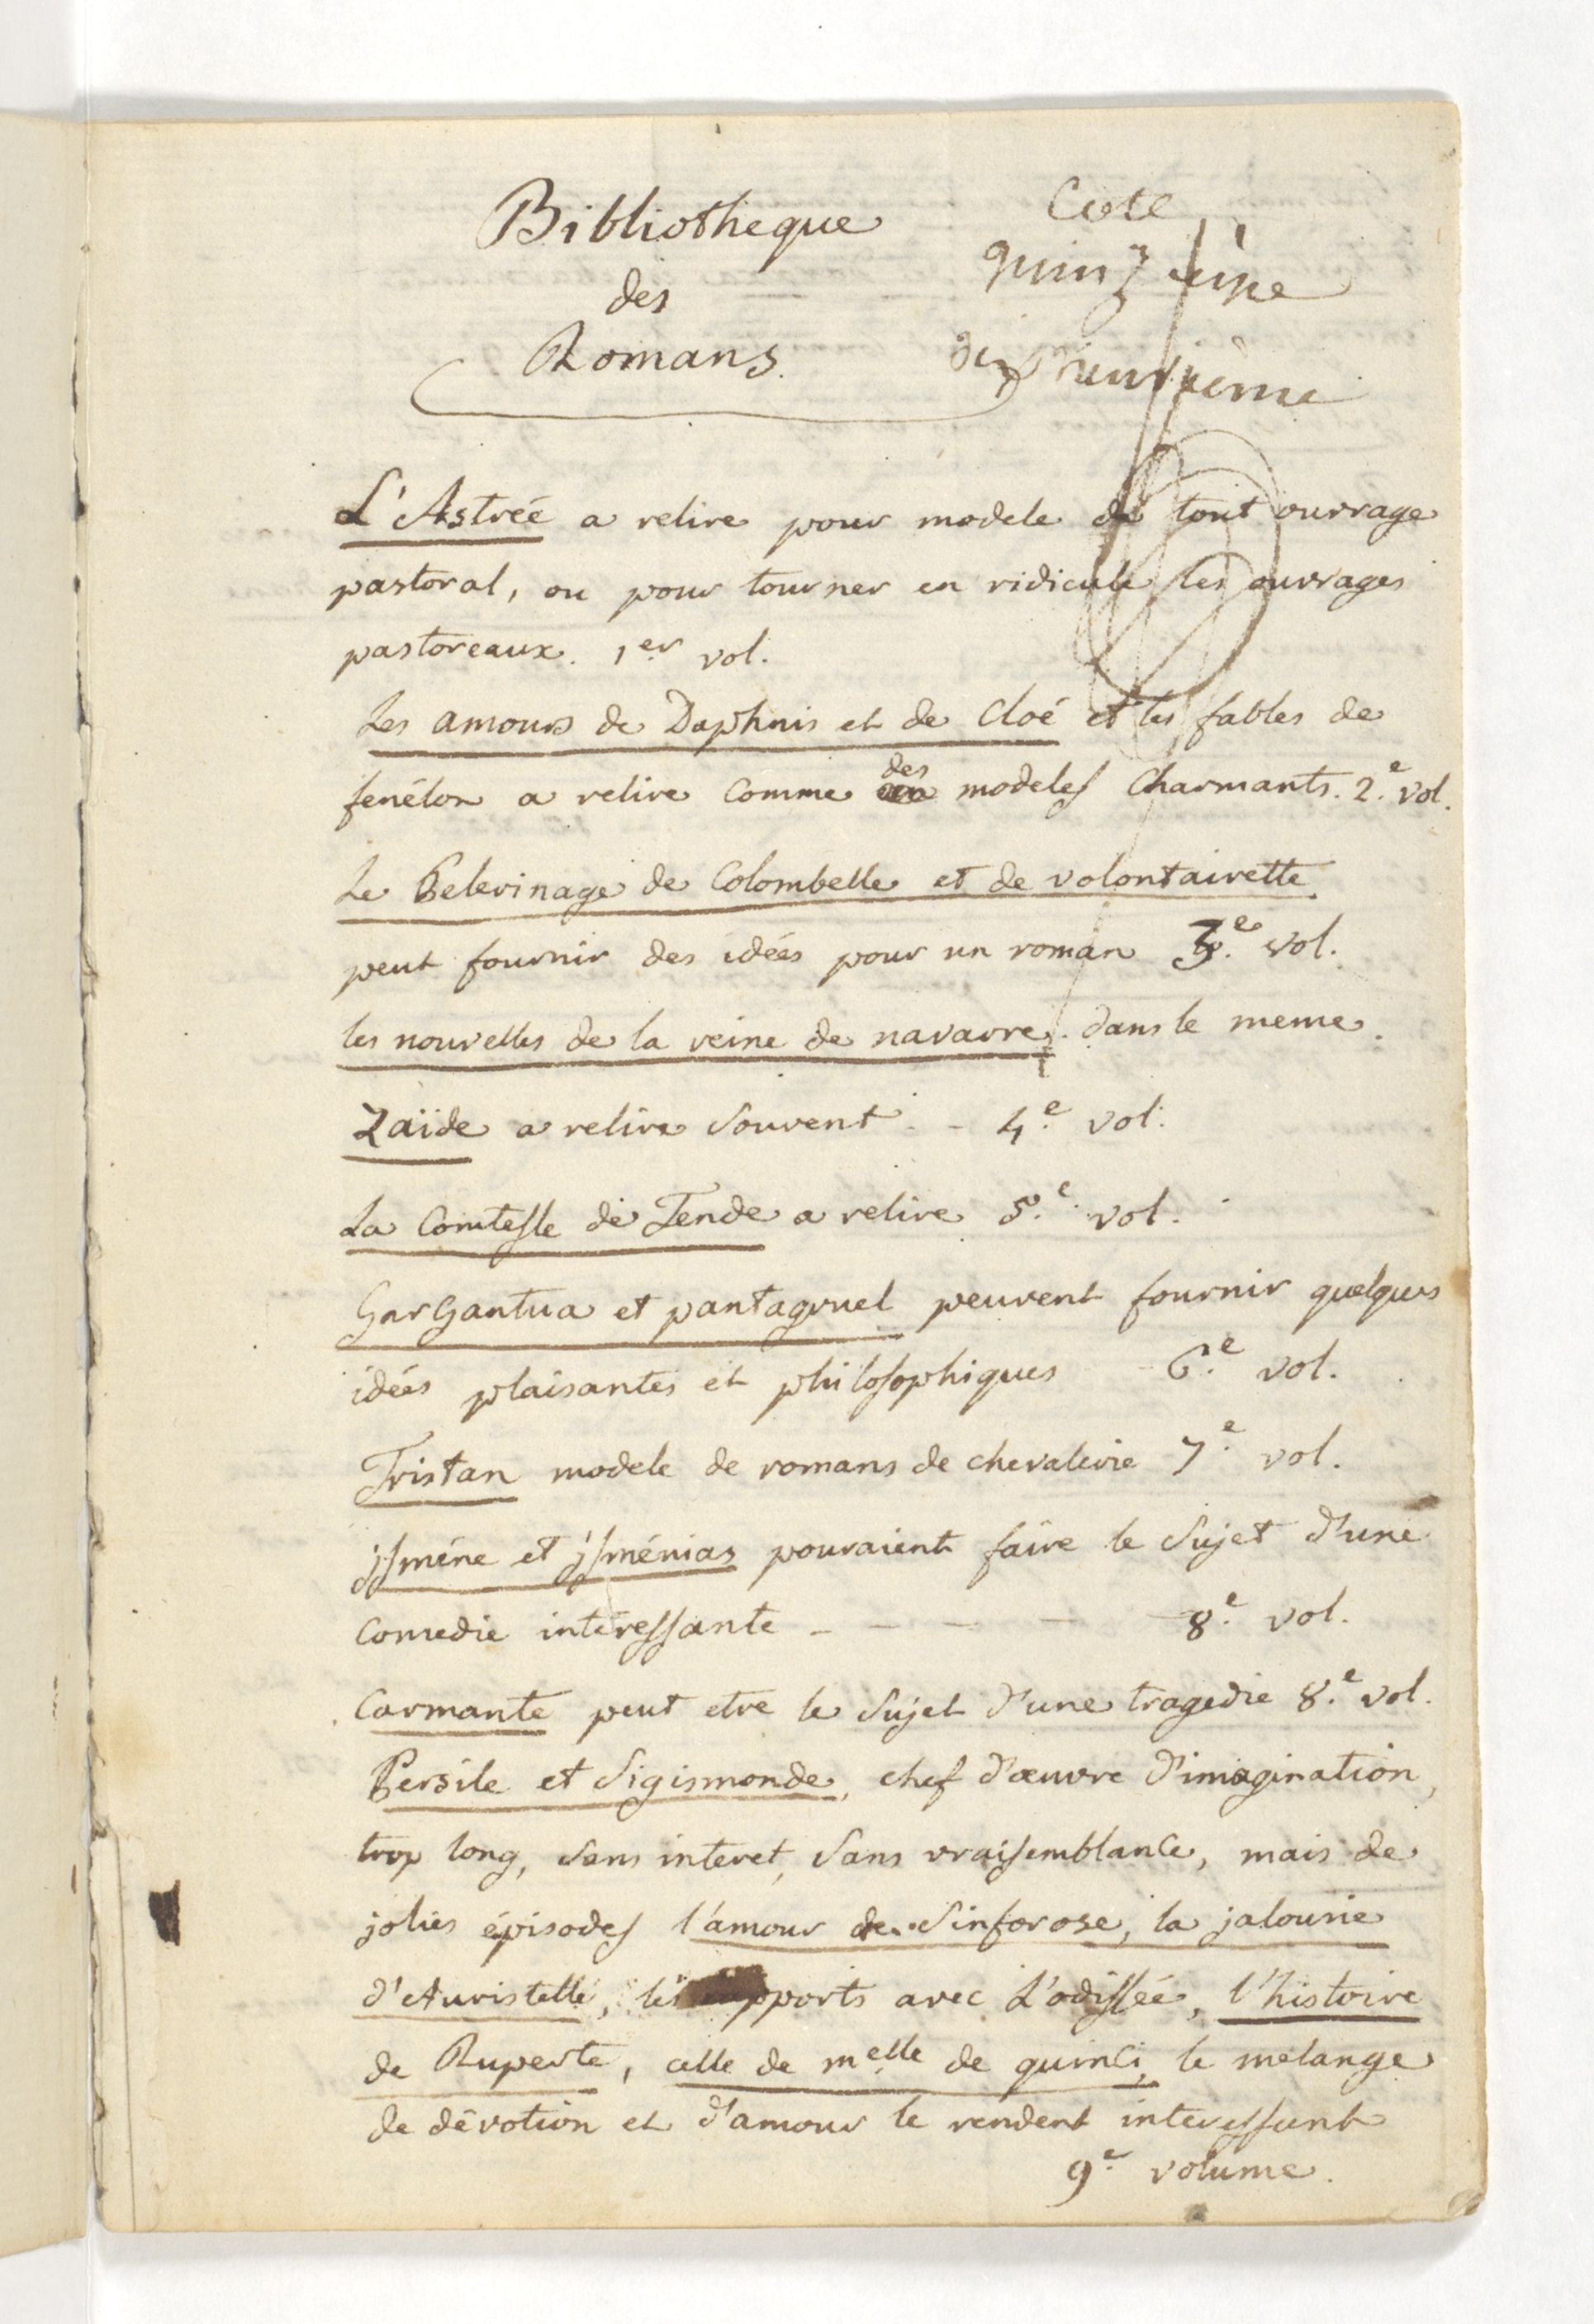 Bibliotheque
des
Romans.
Cote
quinzieme
dix neuvieme
L'Astrée a relire pour modele de tout ouvrage
pastoral, ou pour tourner en ridicule les ouvrages
pastoreaux. 1er vol.
Les amours de Daphnis et de Cloé et les fables de
fenélon a relire comme des modeles charmants. 2.e vol.
Le Pelerinage de Colombelle et de volontairette
peut fournir des idées pour un roman 3.e vol.
les nouvelles de la reine de navarre. dans le meme.
Zaïde a relire souvent - 4.e vol.
La Comtesse de Tende a relire 5.e vol.
Gargantua et pantagruel peuvent fournir quelques
idées plaisantes et philosophiques 6.e vol.
Tristan modele de romans de chevalerie 7.e vol.
jsméne et jsménias pouraient faire le sujet d'une
Comedie interessante - - - - 8.e vol.
Carmante peut etre le sujet d'une tragedie 8.e vol.
Persile et Sigismonde, chef d'œuvre d'imagination,
trop long, sans interet, sans vraisemblance, mais de
jolies épisodes l'amour de Sinforose, la jalousie
d'Auristelle, les rapports avec L'odissée, l'histoire
de Ruperte, celle de melle de quinci, le melange
de dévotion et d'amour le rendent interessant
9.e volume.